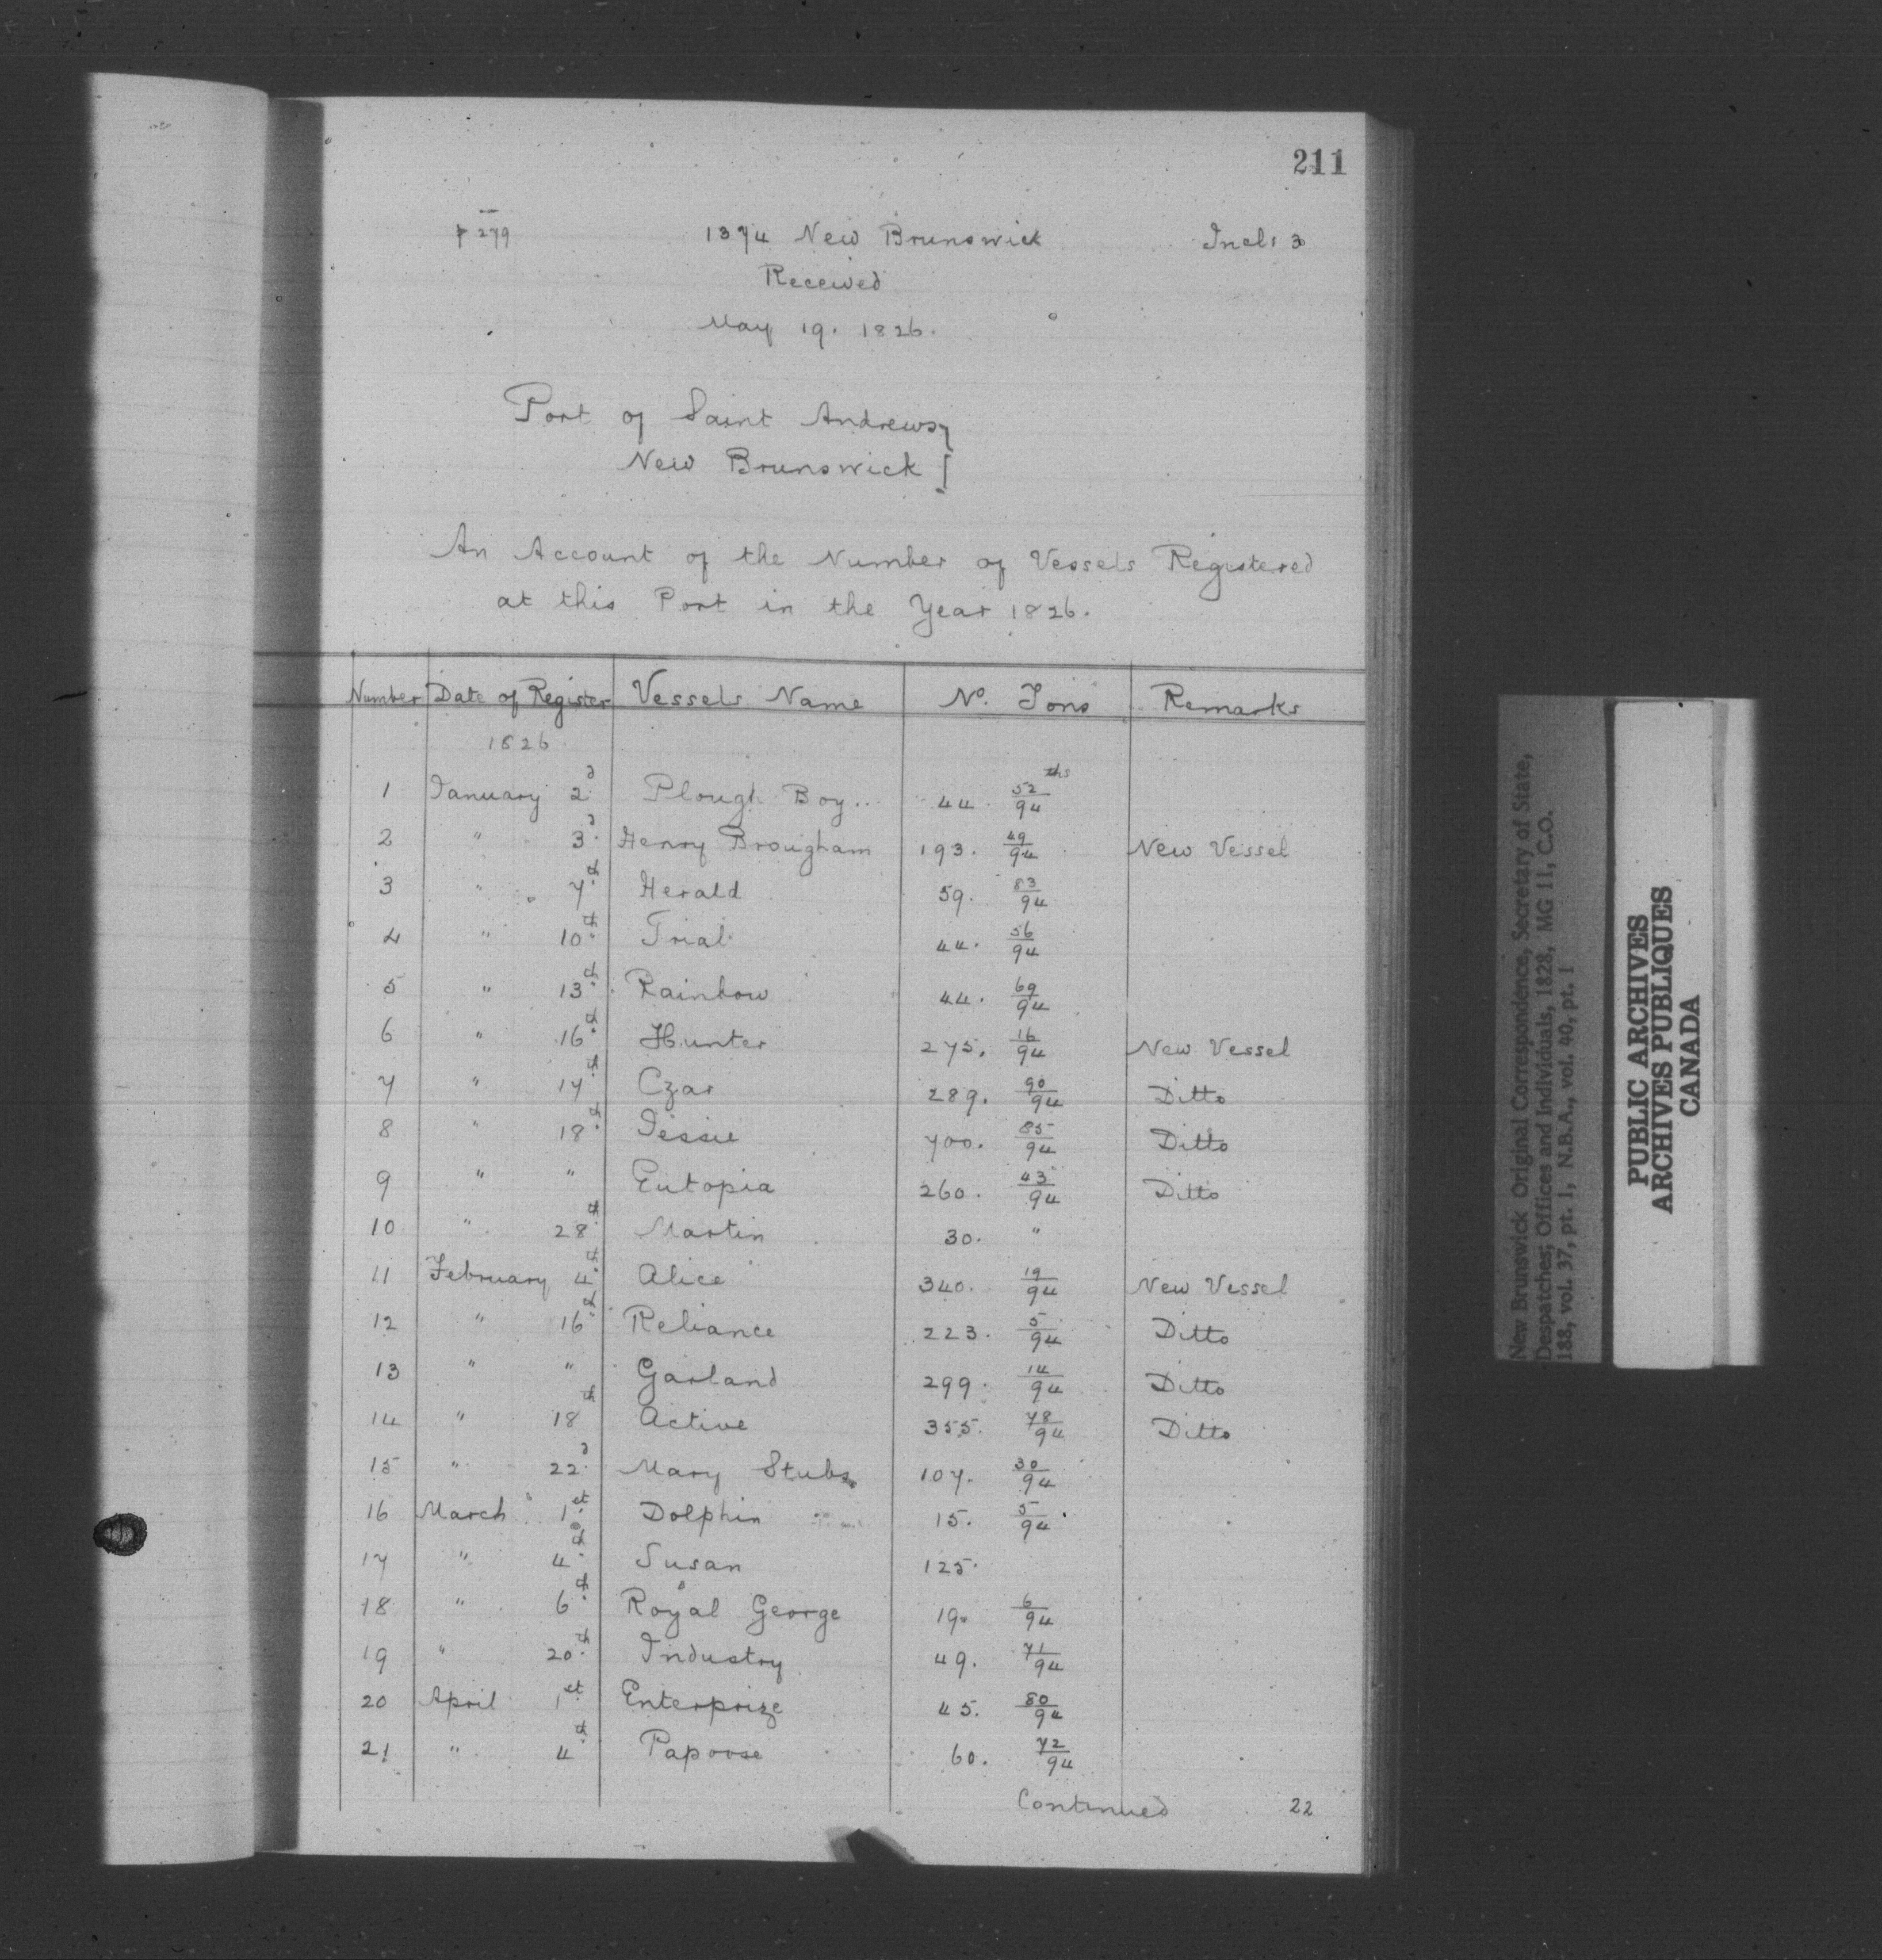 211
p 279 1374 New Brunswick Incl: 3
Received
May 19. 1826.
Port of Saint Andrews }
New Brunswick }
An Account of the Number of Vessels Registered
at this Port in the Year 1826.
Number Date of Register Vessels Name No. Tons Remarks
1826
1 January 2d Plough Boy... 44. 52/94 ths
2 " 3d Henry Brougham 193. 49/94 New Vessel
3 " 7th Herald 59. 83/94
4 " 10th Trial 44. 56/94
5 " 13th Rainbow 44. 69/94
6 " 16th Hunter 275. 16/94 New Vessel
7 " 17th Czar 289. 90/94 Ditto
8 " 18th Jessie 700. 85/94 Ditto
9 " " Eutopia 260. 43/94 Ditto
10 " 28th Martin 30. "
11 February 4th Alice 340. 19/94 New Vessel
12 " 16th Reliance 223. 5/94 Ditto
13 " " Garland 299. 14/94 Ditto
14 " 18th Active 355. 78/94 Ditto
15 " 22d Mary Stubs 107. 30/94
16 March 1st Dolphin 15. 5/94
17 " 4th Susan 125.
18 " 6th Royal George 19. 6/94
19 " 20th Industry 49. 71/94
20 April 1st Enterprize 45. 80/94
21 " 4th Papoose 60. 72/94
Continued 22
New Brunswick Original Correspondence, Secretary of State,
Despatches; Offices and Individuals, 1828, MG 11, C.O.
188, vol. 37, pt. 1, N.B.A., vol. 40, pt. 1
PUBLIC ARCHIVES
ARCHIVES PUBLIQUES
CANADA